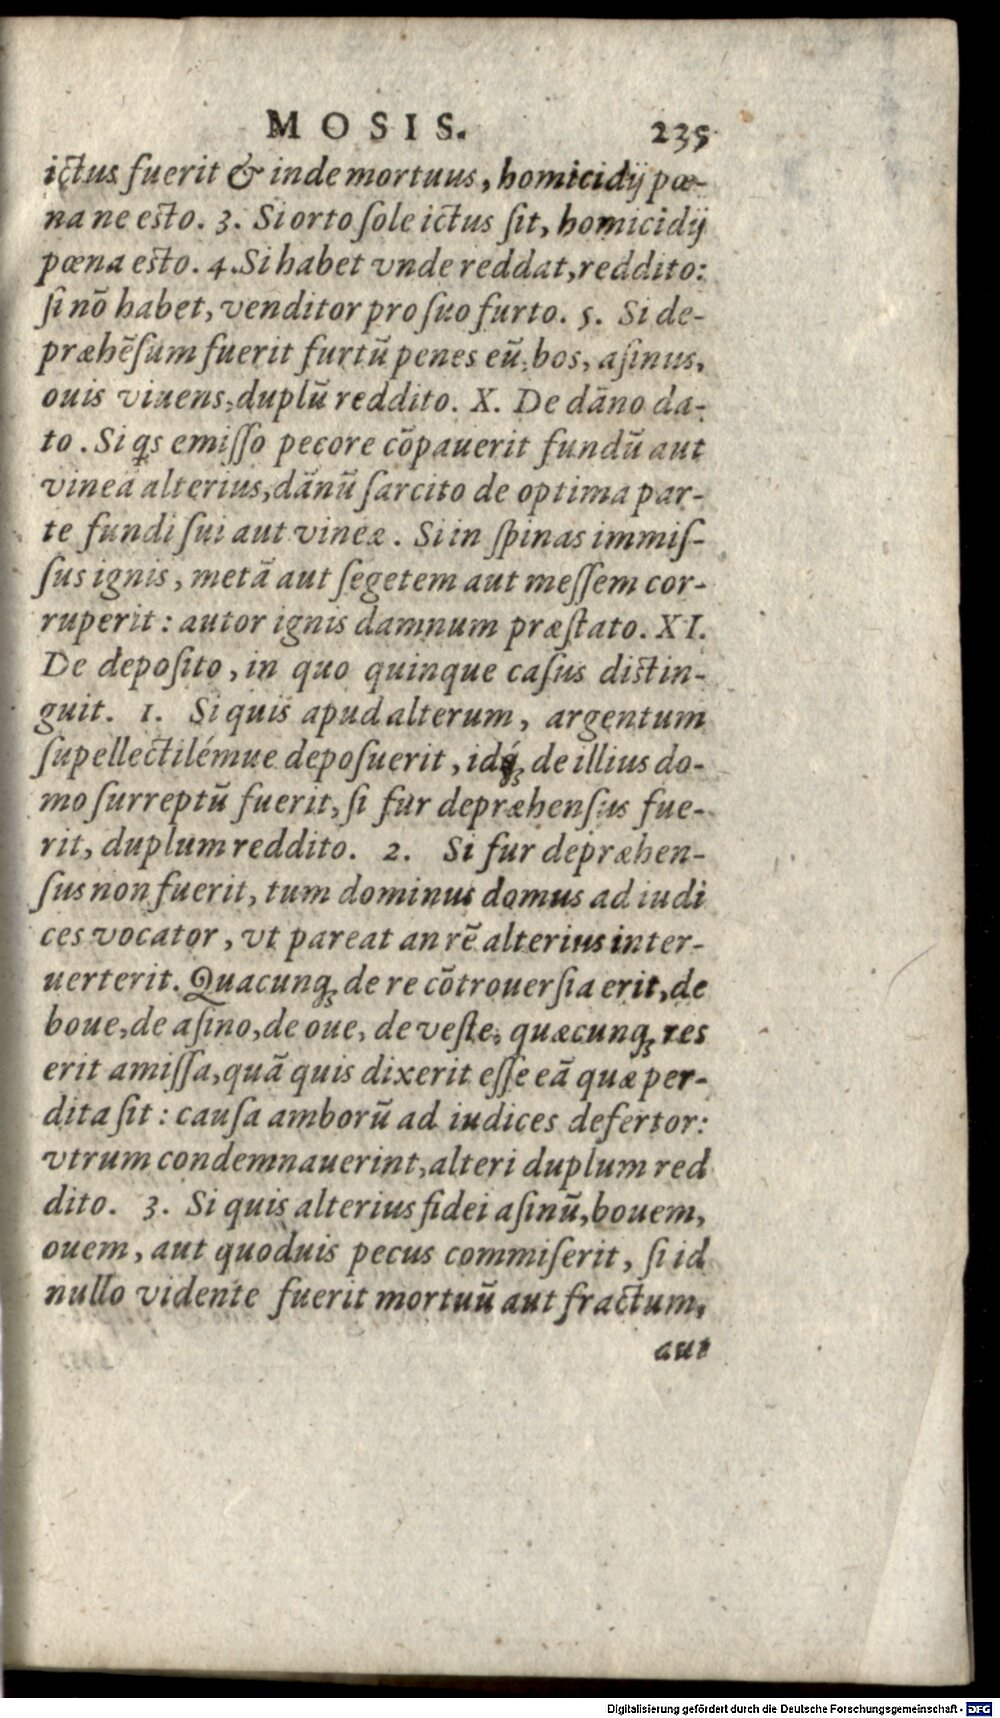 MOSIS. 235
ictus fuerit & inde mortuus, homicidij pœ-
na ne esto. 3. Si orto ſole ictus ſit, homicidij
pœna esto. 4. Si habet vnde reddat, reddito:
ſi nō habet, venditor pro ſuo furto. 5. Si de-
præhēſum fuerit furtū penes eū, bos, aſinus,
ouis viuens, duplū reddito. X. De dāno da-
to. Si qs emiſſo pecore cōpauerit fundū aut
vineā alterius, dānū ſarcito de optima par-
te fundi ſui aut vineæ. Si in ſpinas immiſ-
ſus ignis, metā aut ſegetem aut meſſem cor-
ruperit: autor ignis damnum præſtato. XI.
De depoſito, in quo quinque caſus distin-
guit. 1. Si quis apud alterum, argentum
ſupellectilémue depoſuerit, idq́; de illius do-
mo ſurreptū fuerit, ſi fur depræhenſus fue-
rit, duplum reddito. 2. Si fur depræhen-
ſus non fuerit, tum dominus domus ad iudi
ces vocator, vt pareat an rē alterius inter-
uerterit. Quacunq; de re cōtrouerſia erit, de
boue, de aſino, de oue, de veſte, quæcunq; res
erit amiſſa, quā quis dixerit eſſe eā quæ per-
dita ſit: cauſa amborū ad iudices defertor:
vtrum condemnauerint, alteri duplum red
dito. 3. Si quis alterius fidei aſinū, bouem,
ouem, aut quoduis pecus commiſerit, ſi id
nullo vidente fuerit mortuū aut fractum,
aut
Digitalisierung gefördert durch die Deutsche Forschungsgemeinschaft - DFG